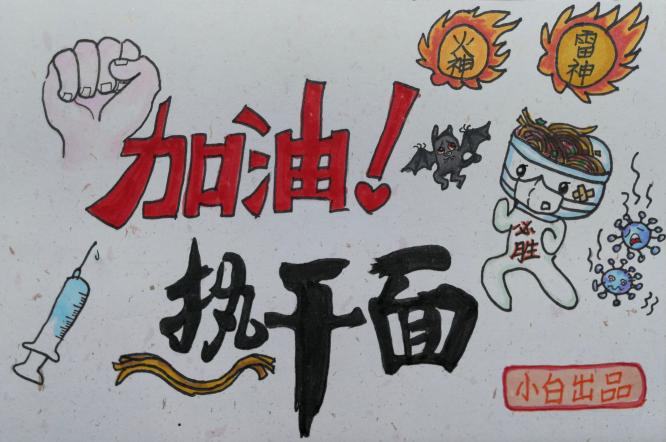 加油!
火神
雷神
热干面
必胜
小白出品